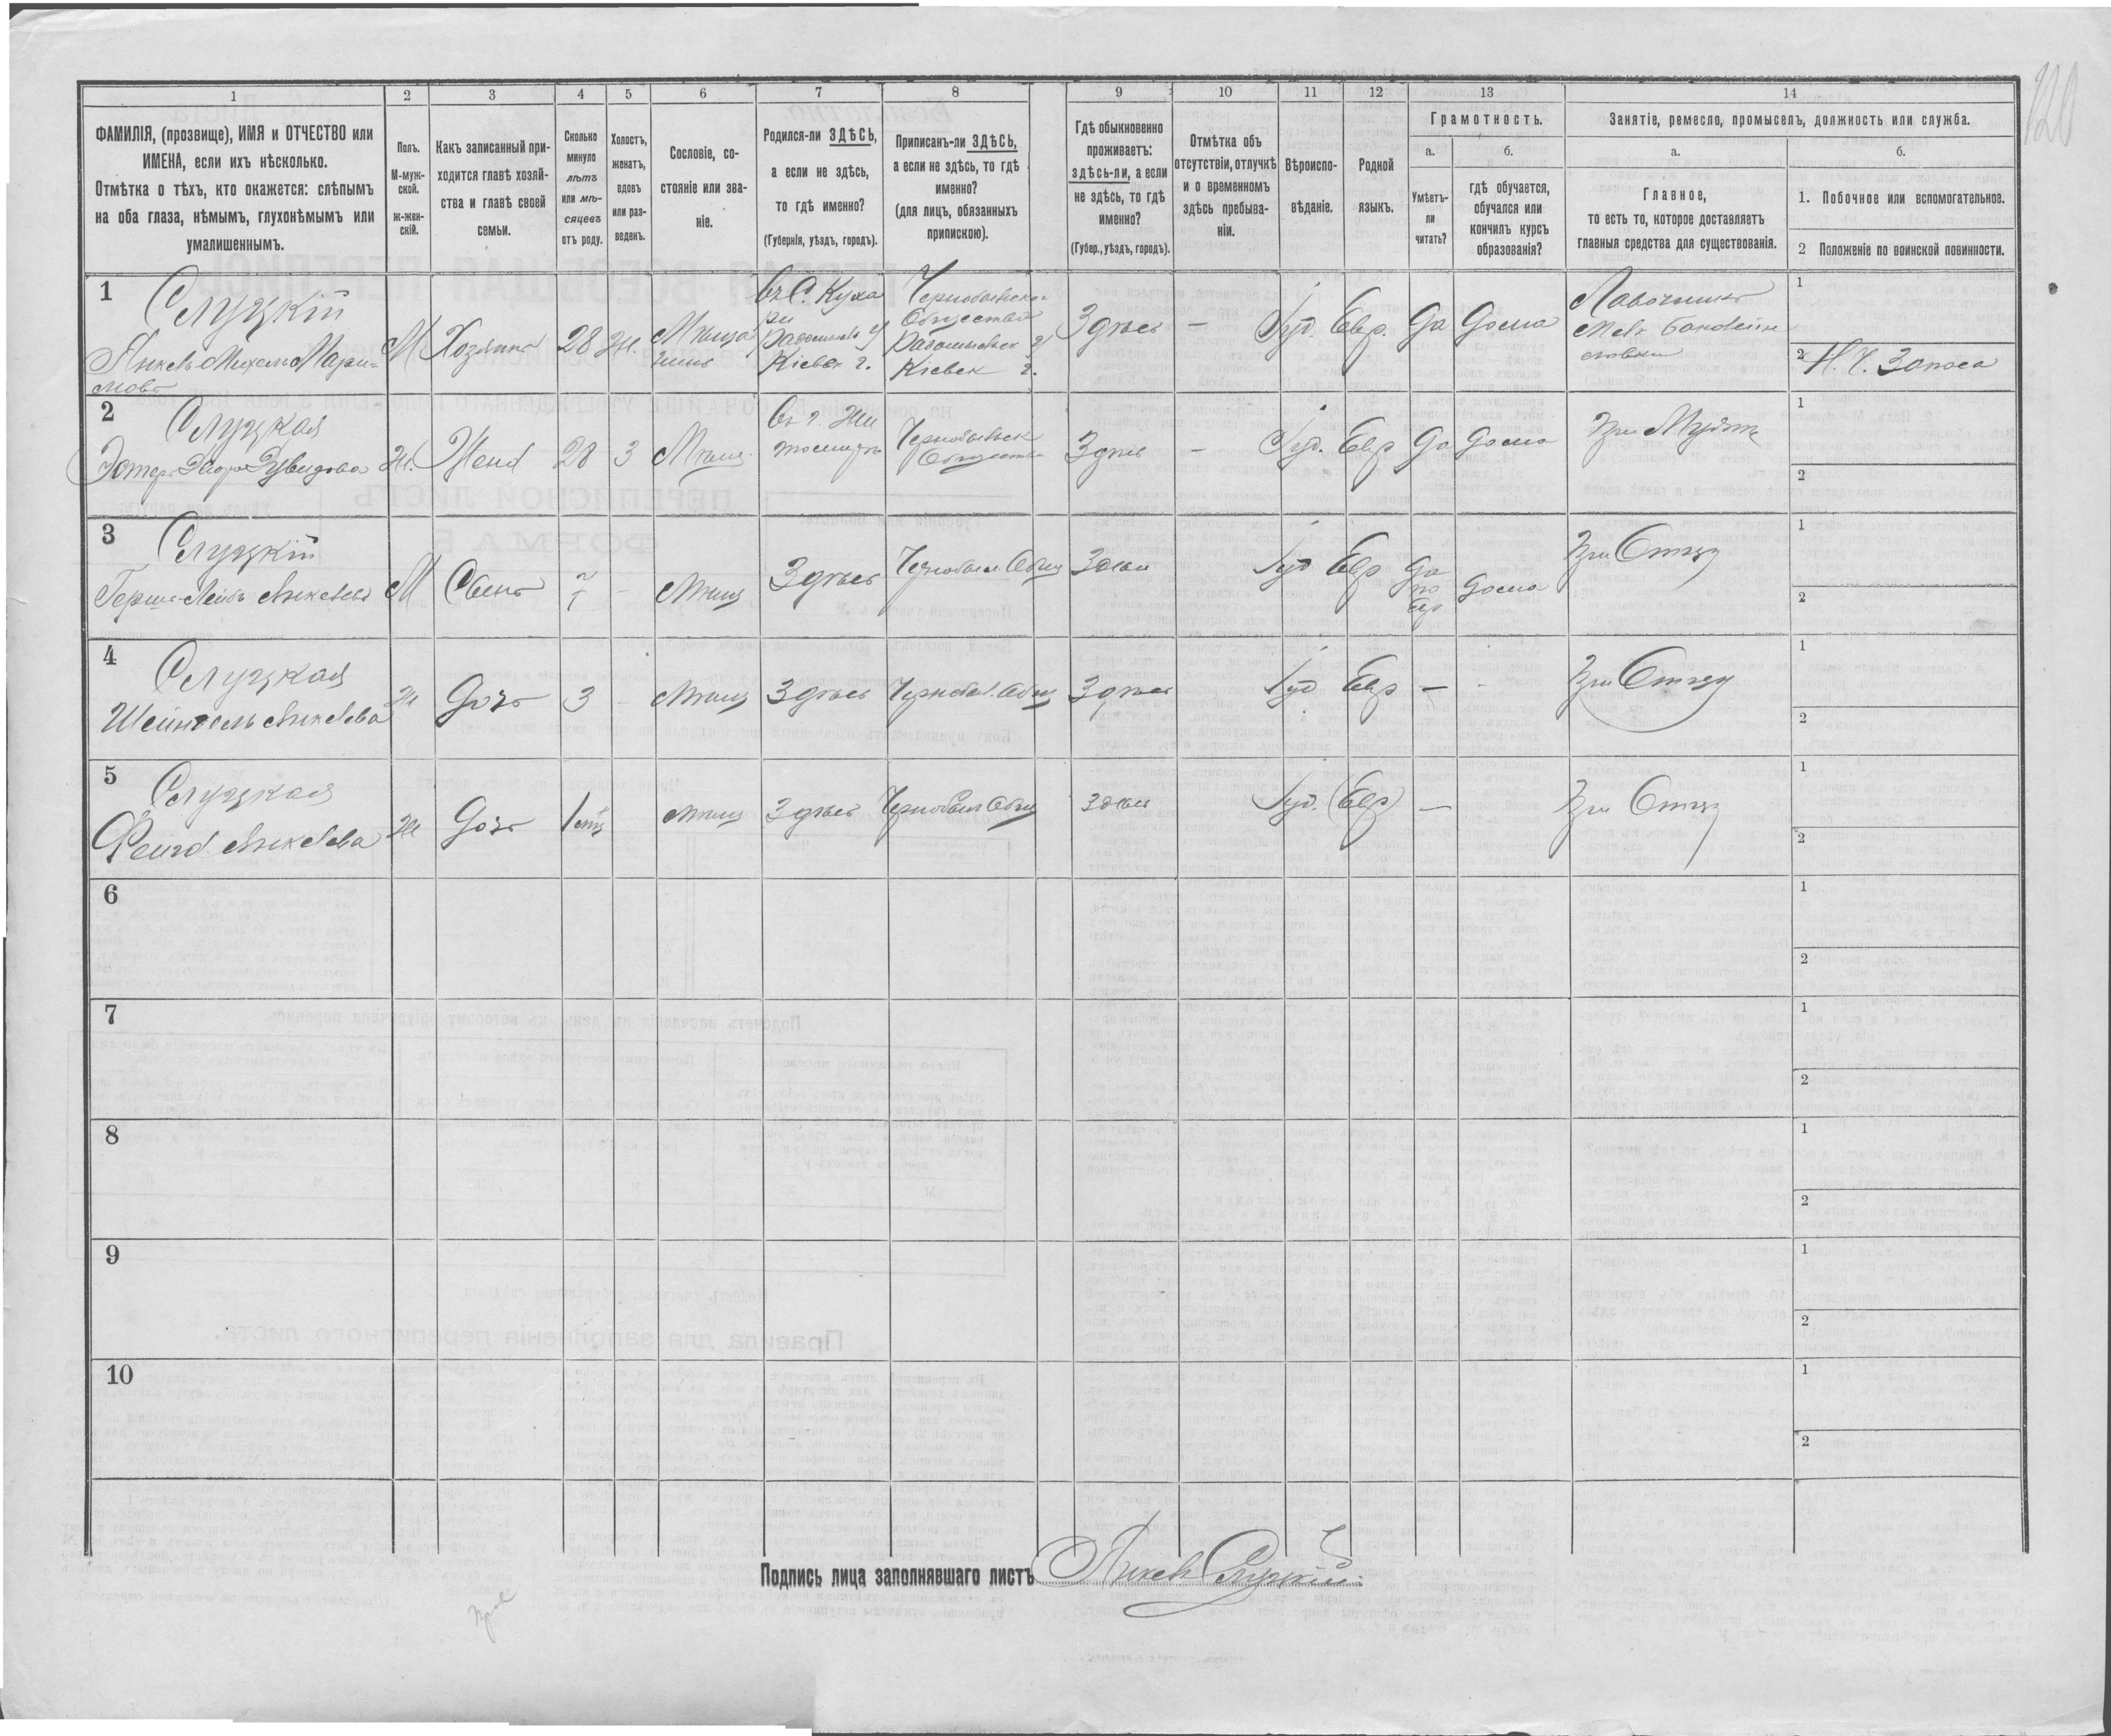 120
1
2
3
4
5
6
7
8
9
10
11
12
13
14
ФАМИЛІЯ, (прозвище), ИМЯ и ОТЧЕСТВО или
ИМЕНА, если ихъ нѣсколько.
Отмѣтка о тѣхъ, кто окажется: слѣпымъ
на оба глаза, нѣмымъ, глухонѣмымъ или
умалишеннымъ.
Полъ.
М-муж-
ской.
ж-жен-
скій.
Какъ записанный при-
ходится главѣ хозяй-
ства и главѣ своей
семьи.
Сколько
минуло
лѣтъ
или мѣ-
сяцевъ
отъ роду.
Холостъ,
женатъ,
вдовъ
или раз-
веденъ.
Сословіе, со-
стояніе или зва-
ніе.
Родился-ли ЗДѢСЬ,
а если не здѣсь,
то гдѣ именно?
(Губернія, уѣздъ, городъ).
Приписанъ-ли ЗДѢСЬ,
а если не здѣсь, то гдѣ
именно?
(для лицъ, обязанныхъ
припискою).
Гдѣ обыкновенно
проживаетъ:
здѣсь-ли, а если
не здѣсь, то гдѣ
именно?
(Губер., уѣздъ, городъ).
Отмѣтка объ
отсутствіи, отлучкѣ
и о временномъ
здѣсь пребыва-
ніи.
Вѣроиспо-
вѣданіе.
Родной
языкъ.
Грамотность.
а.
Умѣетъ-
ли
читать?
б.
гдѣ обучается,
обучался или
кончилъ курсъ
образованія?
Занятіе, ремесло, промыселъ, должность или служба.
а.
Главное,
то есть то, которое доставляетъ
главныя средства для существованія.
б.
1. Побочное или вспомогательное.
2 Положеніе по воинской повинности.
1
Слуцкій
М
Хозяинъ
28
Ж.
Мѣща
нинъ
Въ С. Куха
ри
Кіевск г.
Чернобыльско
Общества
Кіевск г.
Здѣсь
—
Іуд.
Евр.
Да
Дома
Лавочникъ
1
2 Н. Ч. Запаса
2
Слуцкая
Ж.
Жена
28
З
Мѣщ
Въ г. Жи
томиръ
Чернобыльск
Общества
Здѣсь
—
Іуд.
Евр
Да
Дома
При Мужѣ
1
2
3
Слуцкій
Герш-Лейбъ Янкелевъ
М
Сынъ
7
-
Мѣщ
Здѣсь
Чернобыл. Общ
Здѣсь
Іуд
Евр
Да
по
Евр
Дома
При Отцѣ
1
2
4
Слуцкая
Янкелева
Ж
Дочь
3
-
Мѣщ
Здѣсь
Чернобыл. Общ
Здѣсь
Іуд
Евр
—
-
При Отцѣ
1
2
5
Слуцкая
Фейга Янкелева
Ж
Дочь
1
Мѣщ
Здѣсь
Чернобыл Общ
Здѣсь
Іуд.
Евр
—
При Отцѣ
1
2
6
1
2
7
1
2
8
1
2
9
1
2
10
1
2
Подпись лица заполнявшаго листъ Янкель Слуцкій